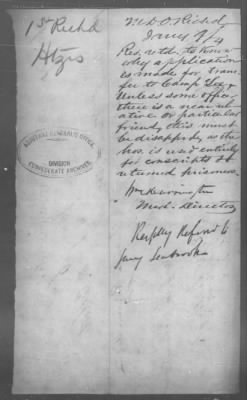 1st Richd
Htzrs
ADJUTANT GENERAL'S OFFICE
DIVISION
CONFEDERATE ARCHIVES
M. D. O. Richd
Jany 9/4
Res. retd. to know
why a application
is made for trans
fer to Camp Lee
Unless some officer
there is a near rel
ative or particular
friend, this must
be disapp'd, as the
hos. is used entirely
for conscripts &
returned prisoners.
Wm Carrington
Med. Director
Resply Referred to
Surg Seabrook